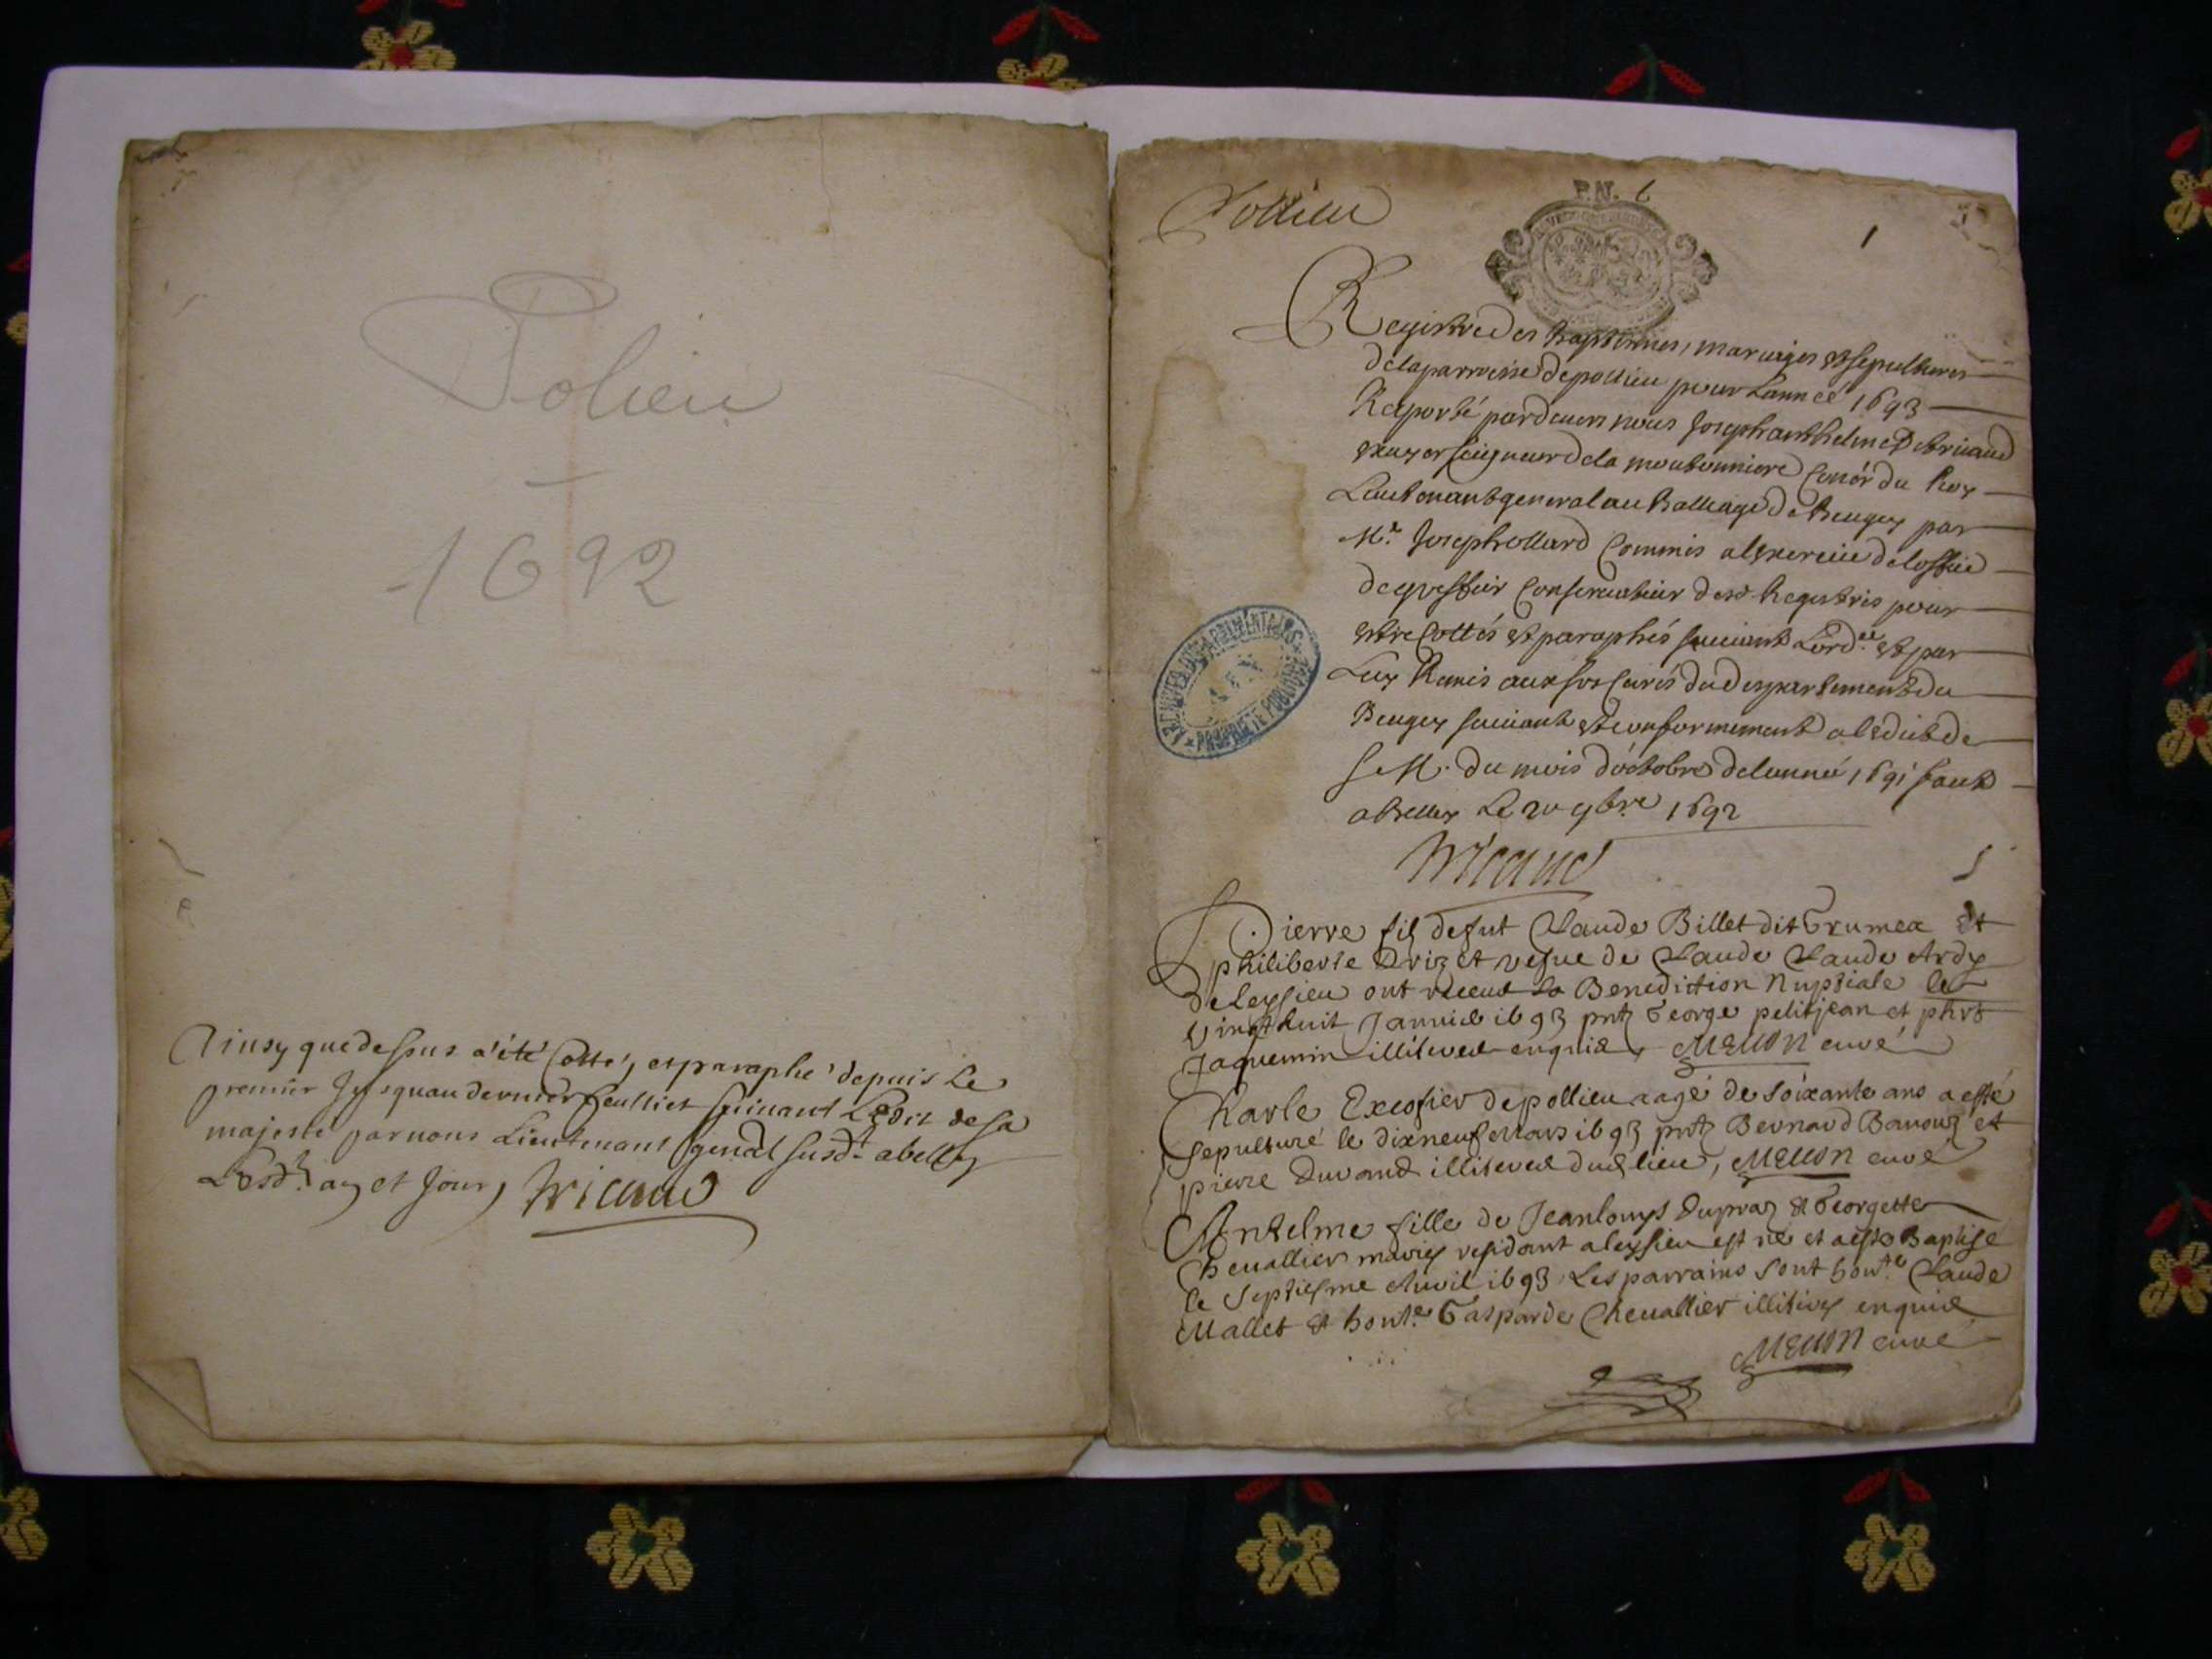 Polieu
1692
Ainsy que dessus a été Cotté, et paraphé depuis Le
premier Jusquau dernier feulliet suivant L'edit de sa
majesté par nous Lieutenant gen̄al susd.t a belley
Lesd.ts an et Jour,
Pollieu
P.N. 6
1
Registre des baptemes, mariages et sepultures
de la parroisse de pollieu pour Lannéé 1693
Raporté pardeuers nous Joseph anthelme De
escuyer seigneur de la moutonniere Conér du Roy
Lieutenant general au Balliage de beugey par
Mr. Joseph ollard Commis a lexercice de loffice
de greffier Conservateur desd. Registres pour
estre Cottés et paraphés suiuant Lord.ce et par
Luy Remis aux srs Curés du despartement du
Beugey suiuant et conformement a ledict de
S. M. du mois d'octobre de lannéé 1691 faict
a belley Le 20 9bre 1692
ARCHIVES DEPARTEMENTALES
AIN
PROPRIETE PUBLIQUE
Pierre filz de fut Claude Billet dit Trumea et
philiberte Drizet vefue de Claude Claude Ardy
de leyssieu ont receut la Benediction Nuptiale le
vingt huit Januier 1693 pntz George petitjean et
Jaquemin illiterez enquis, Meuon curé
Charle Excoffier de pollieu aagé de soixante ans a esté
sepulturé le dixneuf Mars 1693 pntz Bernard et
pierre Durand illiterez dud lieu, Meuon curé
Antelme fille de Jean louys Dupraz et Georgette
Cheuallier mariez residant a leyssieu est né et a esté Baptisé
le septiesme Auril 1693 Les parrains sont hon.te Claude
Mallet et hon.te Gasparde Cheuallier illiterez enquis
Meuon curé